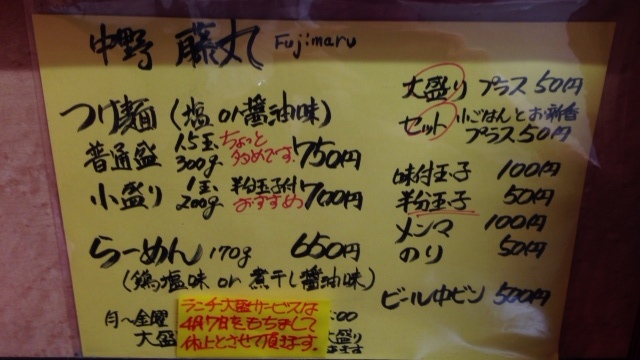 中野 藤丸 Fujimaru
つけ麺 (塩 or 醤油味)
普通盛 1.5玉 300g ちょっと多めです. 750円
小盛り 1玉 200g 半分玉子付 おすすめ 700円
らーめん 170g 650円
(鶏塩味 or 煮干し醤油味)
月〜金曜 :00
大盛 大盛り
ランチ大盛サービスは
4月7日をもちまして
休止とさせて頂きます.
大盛り プラス 50円
セット 小ごはんとお新香
プラス 50円
味付玉子 100円
半分玉子 50円
メンマ 100円
のり 50円
ビール中ビン 500円